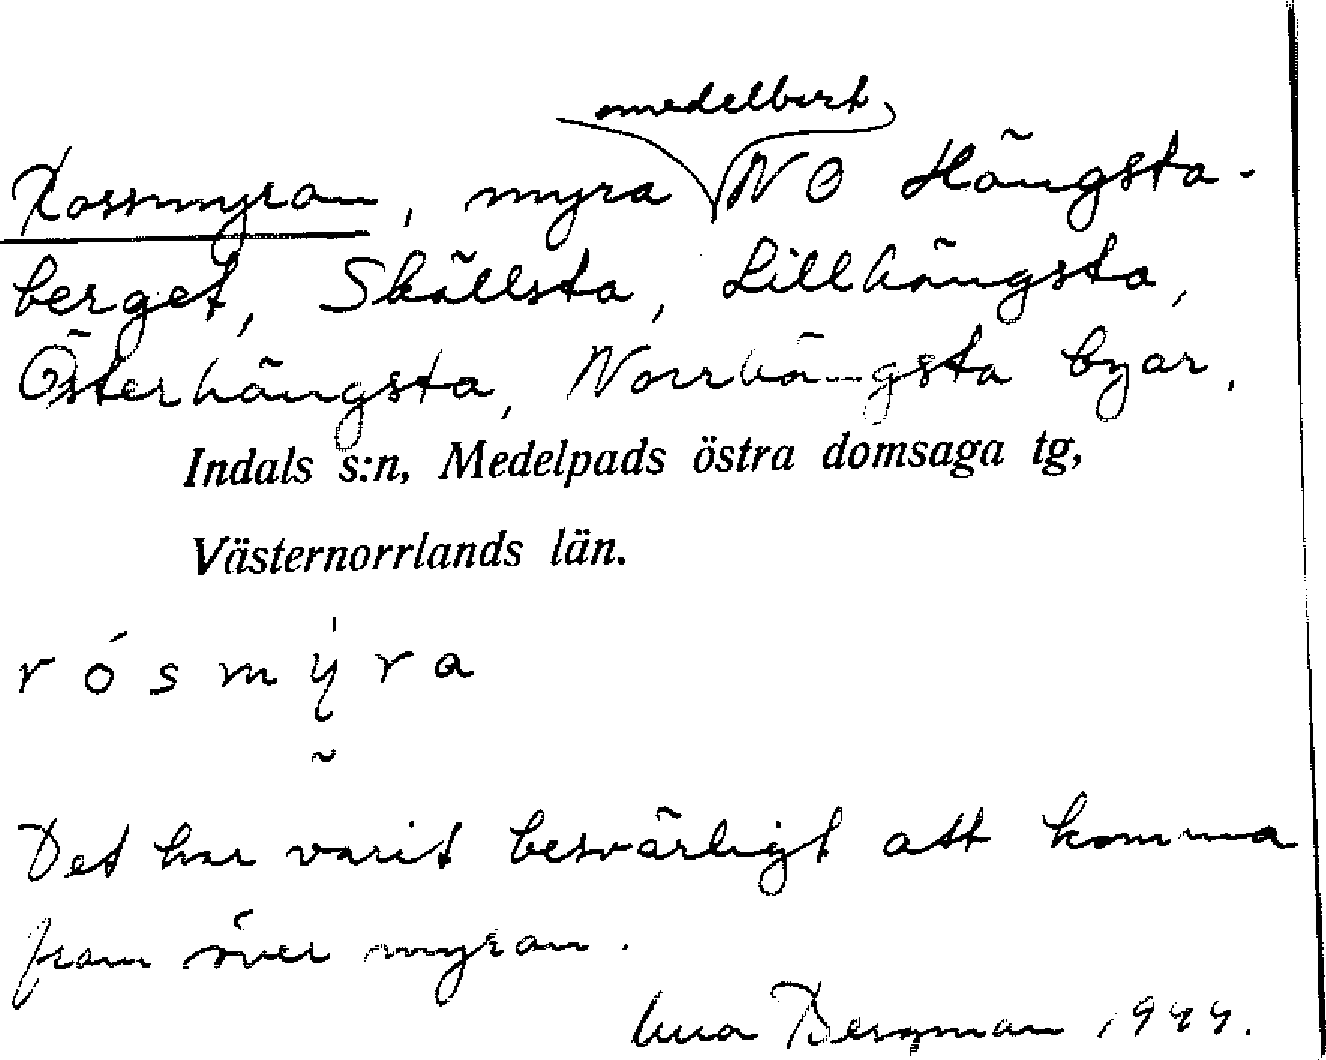 medelbart
Rossmyran, myra NO Hängsta-
berget, Skällsta, Lillhängsta,
Österhängsta, Norrhängsta byar,
Indals s:n, Medelpads östra domsaga tg,
Västernorrlands län.
rósmýra
Det har varit besvärligt att komma
fram över myran.
Bergman 1944.